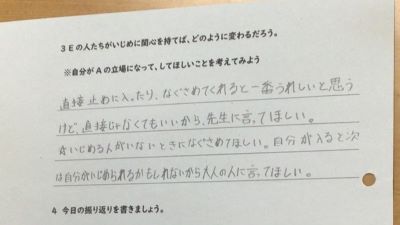 3 Eの人たちがいじめに関心を持てば、どのように変わるだろう。
※自分がAの立場になって、してほしいことを考えてみよう
直接止めに入ったり、なぐさめてくれると一番うれしいと思う
けど、直接じゃなくてもいいから、先生に言ってほしい。
☆いじめる人がいないときになぐさめてほしい。自分が入ると次
は自分がいじめられるかもしれないから大人の人に言ってほしい。
4 今日の振り返りを書きましょう。